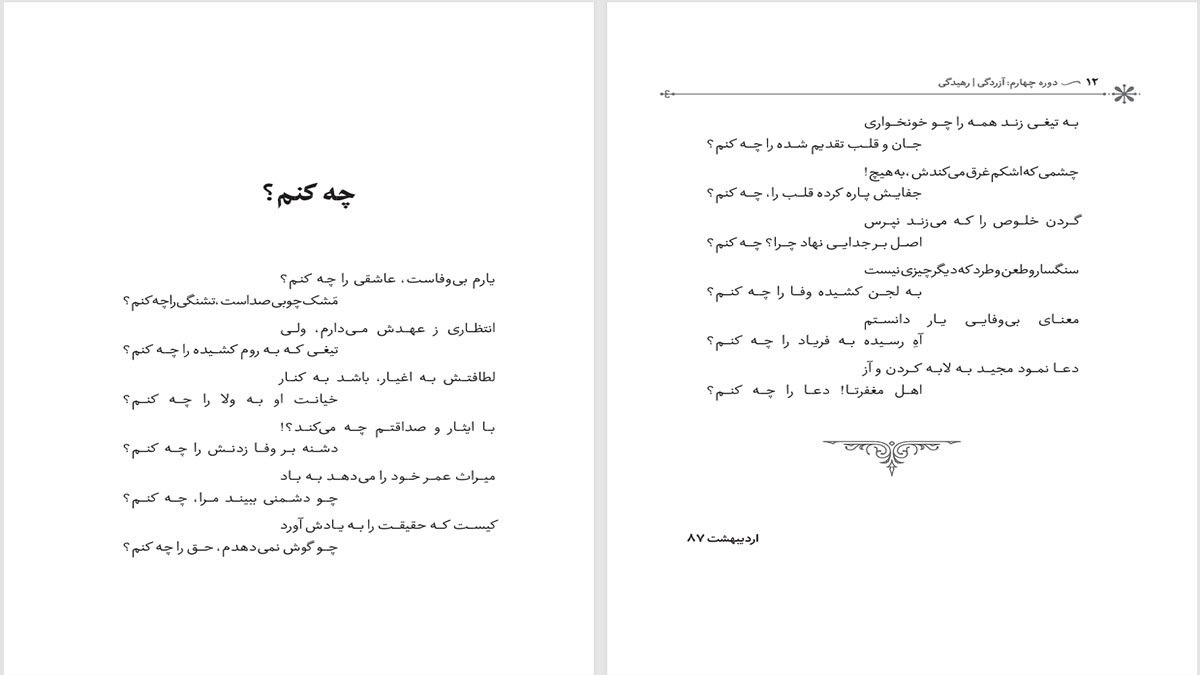 چه کنم؟
یارم بی‌وفاست، عاشقی را چه کنم؟
مَشک چوبی صداست، تشنگی را چه کنم؟
انتظاری ز عهدش می‌دارم، ولی
تیغی که به روم کشیده را چه کنم؟
لطافتش به اغیار، باشد به کنار
خیانت او به ولا را چه کنم؟
با ایثار و صداقتم چه می‌کند؟!
دشنه بر وفا زدنش را چه کنم؟
میراث عمر خود را می‌دهد به باد
چو دشمنی ببیند مرا، چه کنم؟
کیست که حقیقت را به یادش آورد
چو گوش نمی‌دهدم، حق را چه کنم؟
۱۲ دوره چهارم: آزردگی | رهیدگی
به تیغی زند همه را چو خونخواری
جان و قلب تقدیم شده را چه کنم؟
چشمی که اشکم غرق می‌کندش، به هیچ!
جفایش پاره کرده قلب را، چه کنم؟
گردن خلوص را که می‌زند نپرس
اصل بر جدایی نهاد چرا؟ چه کنم؟
سنگسار و طعن و طرد که دیگر چیزی نیست
به لجن کشیده وفا را چه کنم؟
معنای بی‌وفایی یار دانستم
آهِ رسیده به فریاد را چه کنم؟
دعا نمود مجید به لابه کردن و آز
اهل مغفرتا! دعا را چه کنم؟
اردیبهشت ۸۷